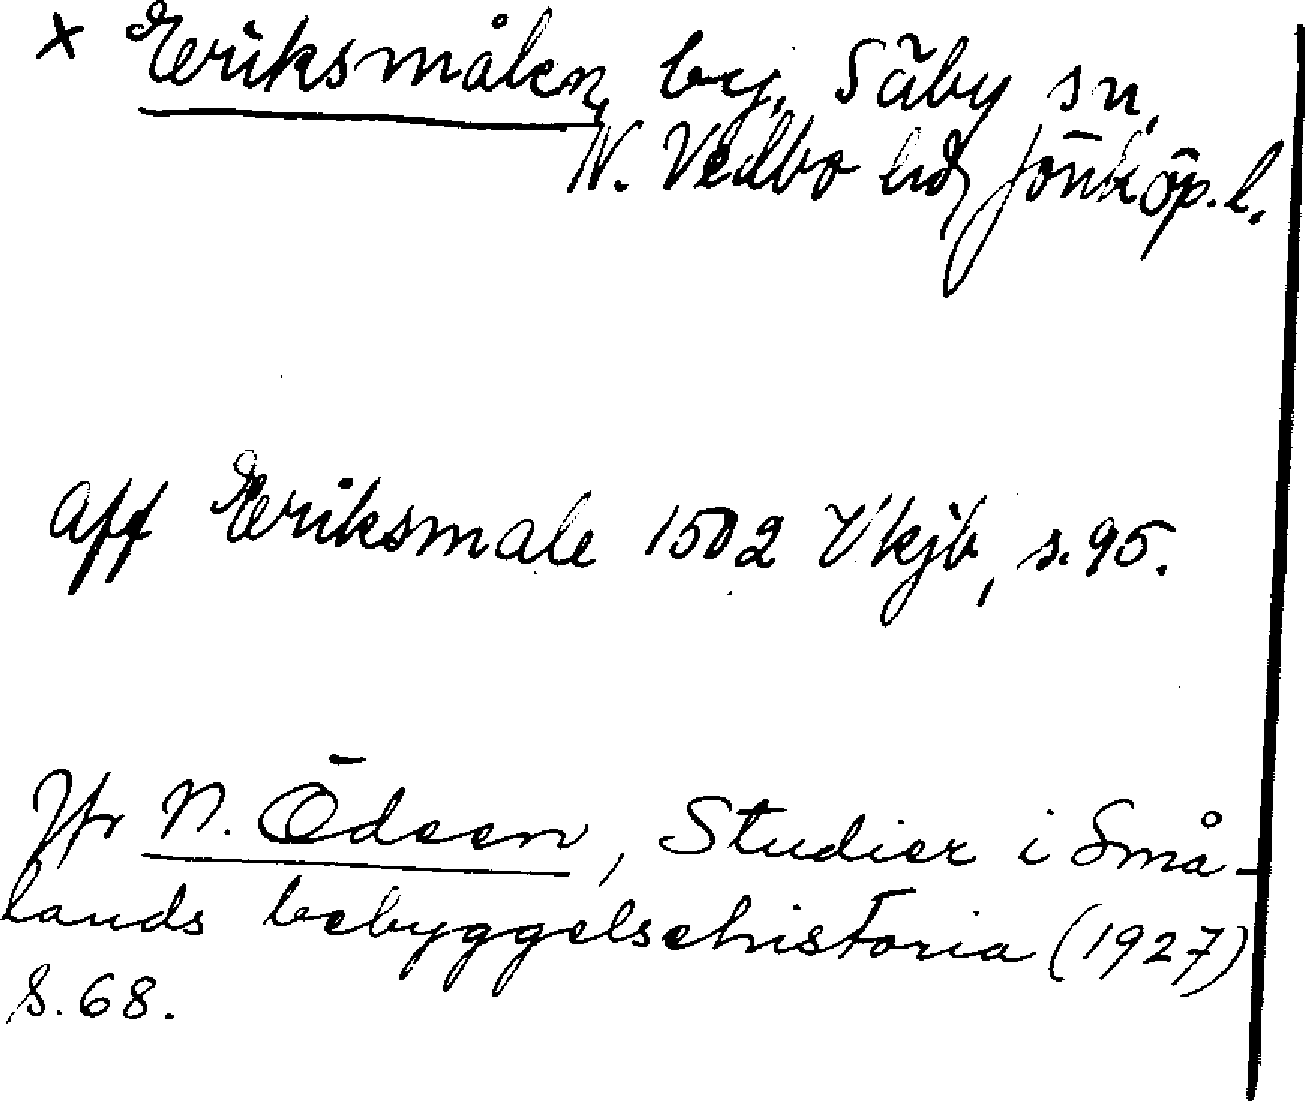 x Eriksmålen, by, Säby sn,
N. Vedbo hd, Jönköp. l.
aff Eriksmale 1502 Vkjb, s. 95.
Jfr N. Ödeen, Studier i Små-
lands bebyggelsehistoria (1927)
S. 68.